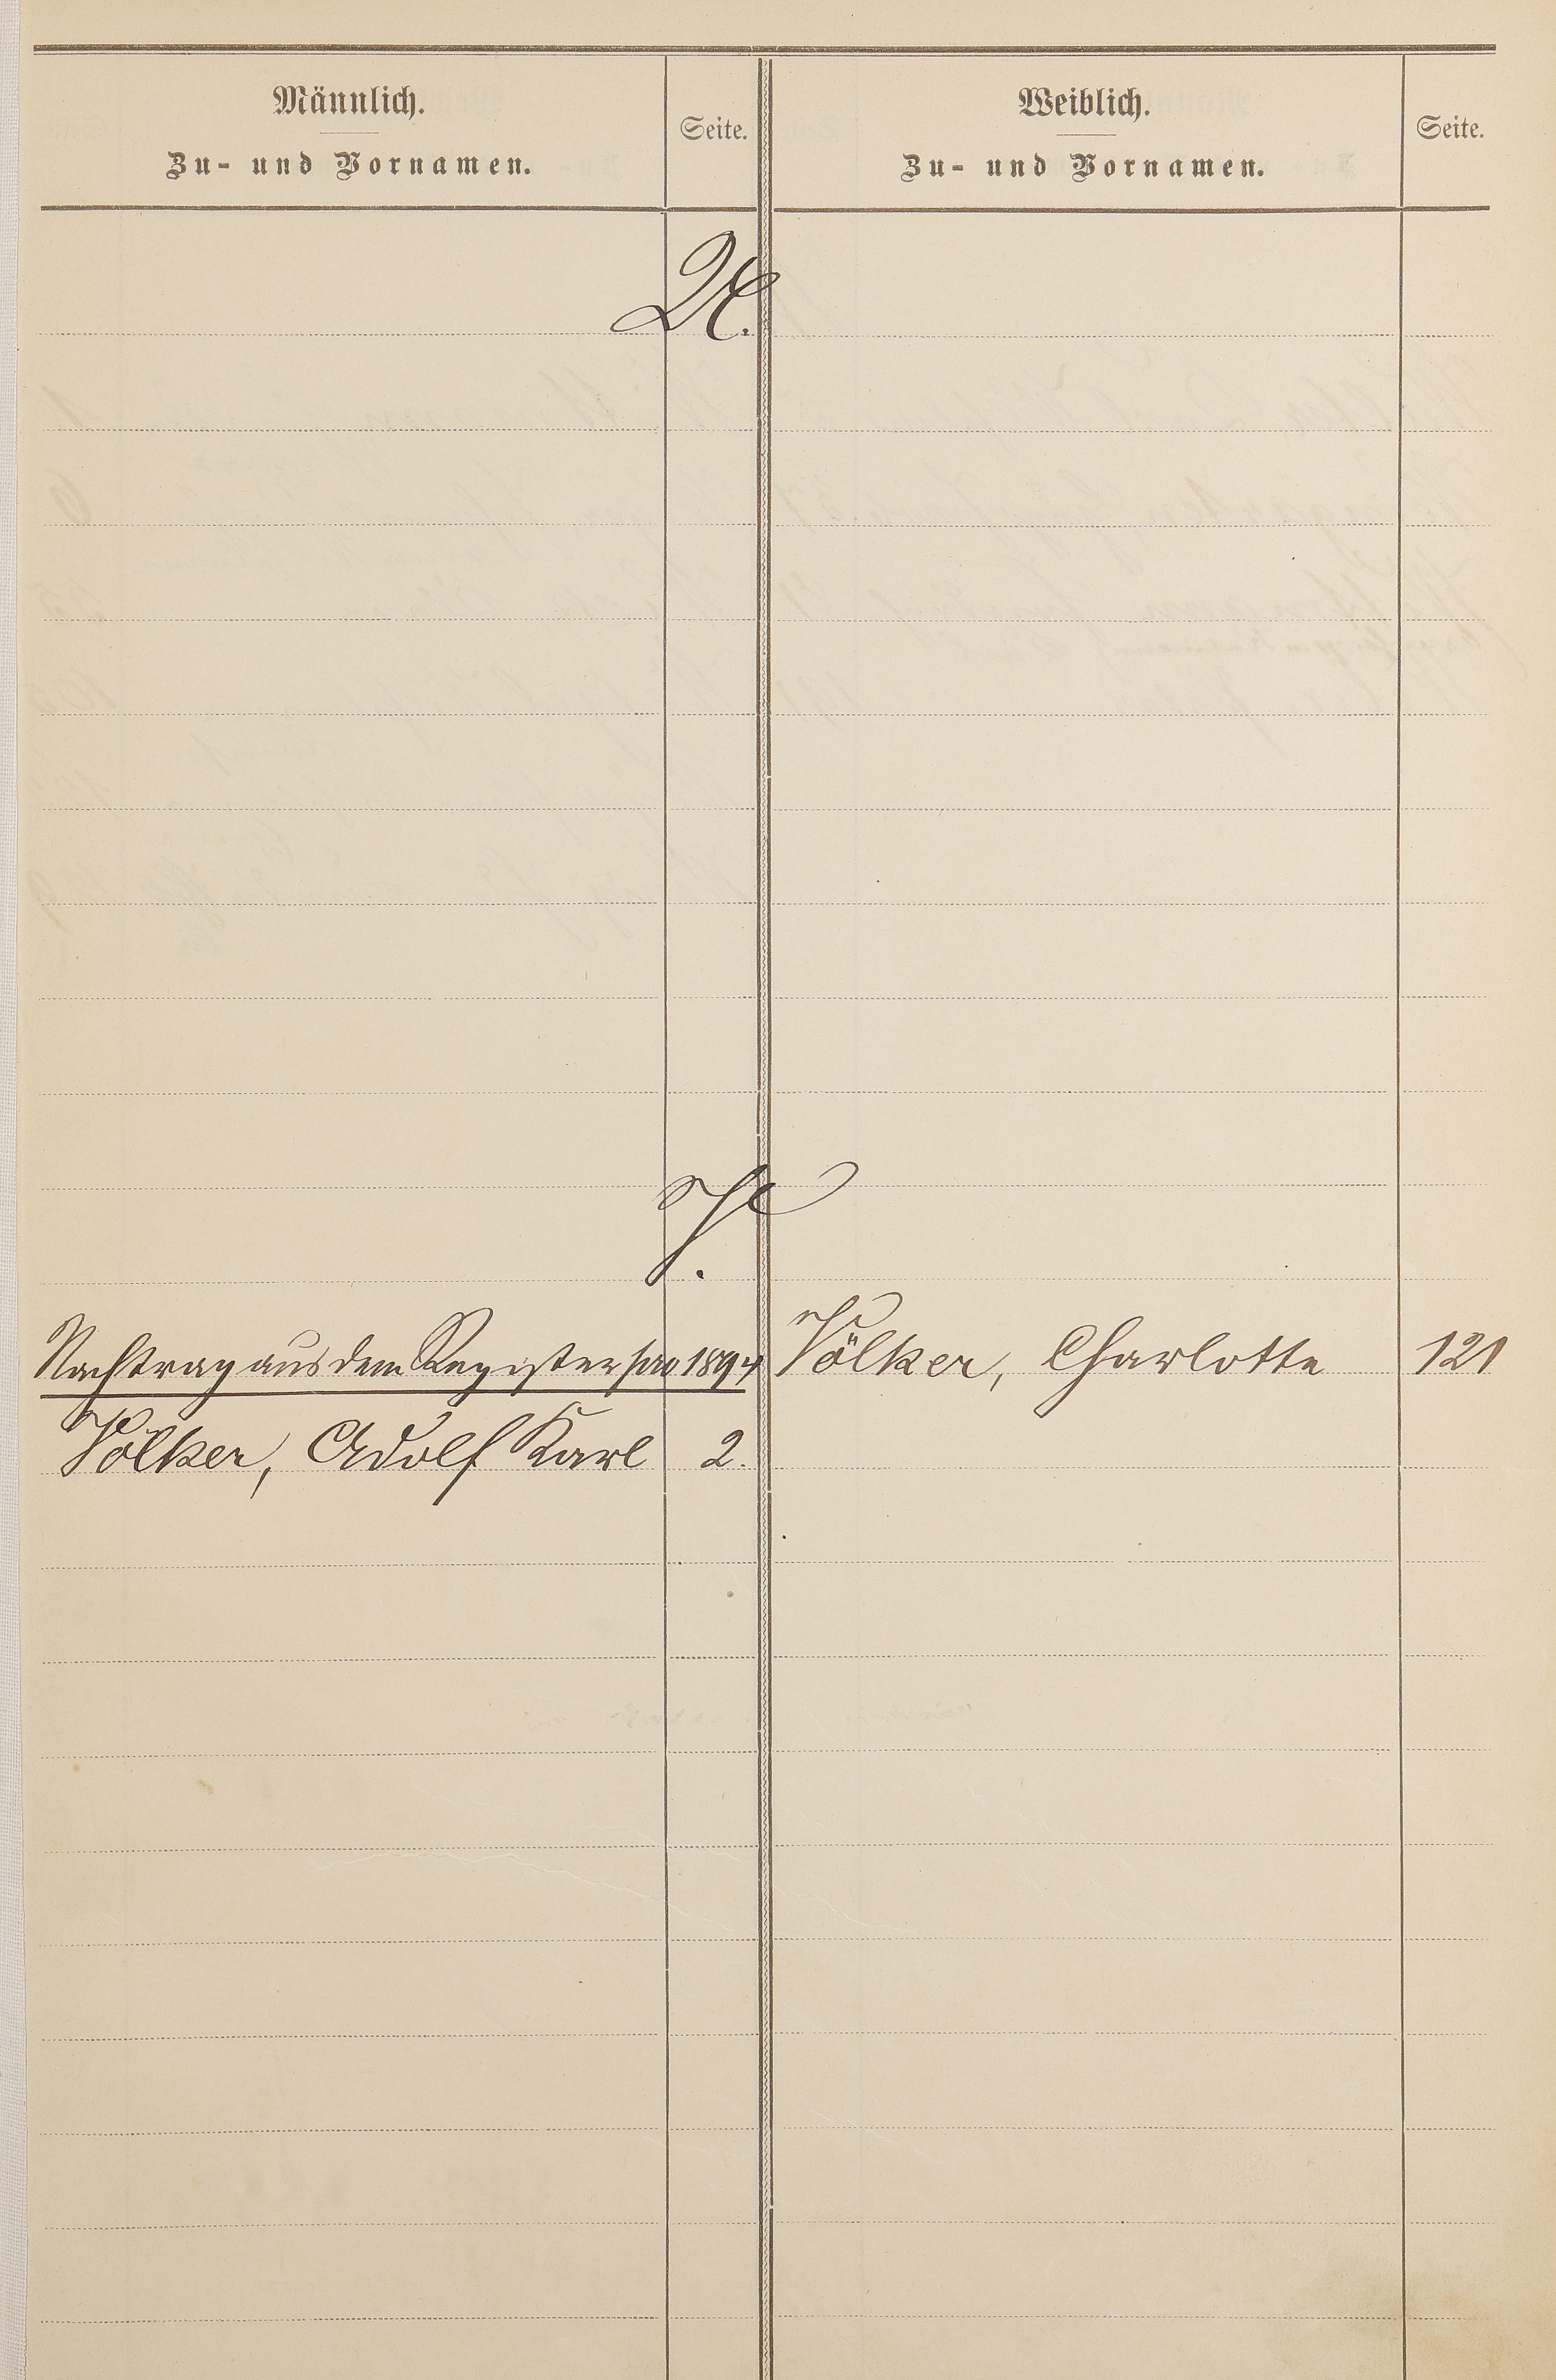 Männlich.
Zu- und Vornamen.
Seite.
Weiblich.
Zu- und Vornamen.
Seite.
U.
V.
Nachtrag aus dem Register pro 1894
Völker, Adolf Karl 2.
Völker, Charlotte 121